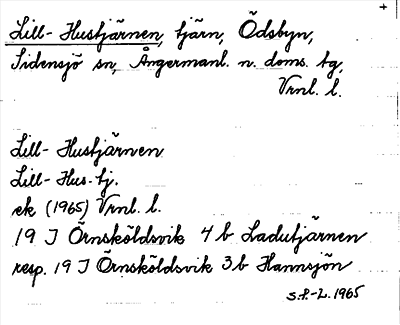 Lill-Hustjärnen, tjärn, Ödsbyn,
Sidensjö sn, Ångermanl. n. doms. tg,
Vrnl. l.
Lill-Hustjärnen
Lill-Hus-tj.
ek (1965) Vrnl. l.
19 J Örnsköldsvik 4 b Ladutjärnen
resp. 19 J Örnsköldsvik 3 b Hannsjön
S.P.-L. 1965